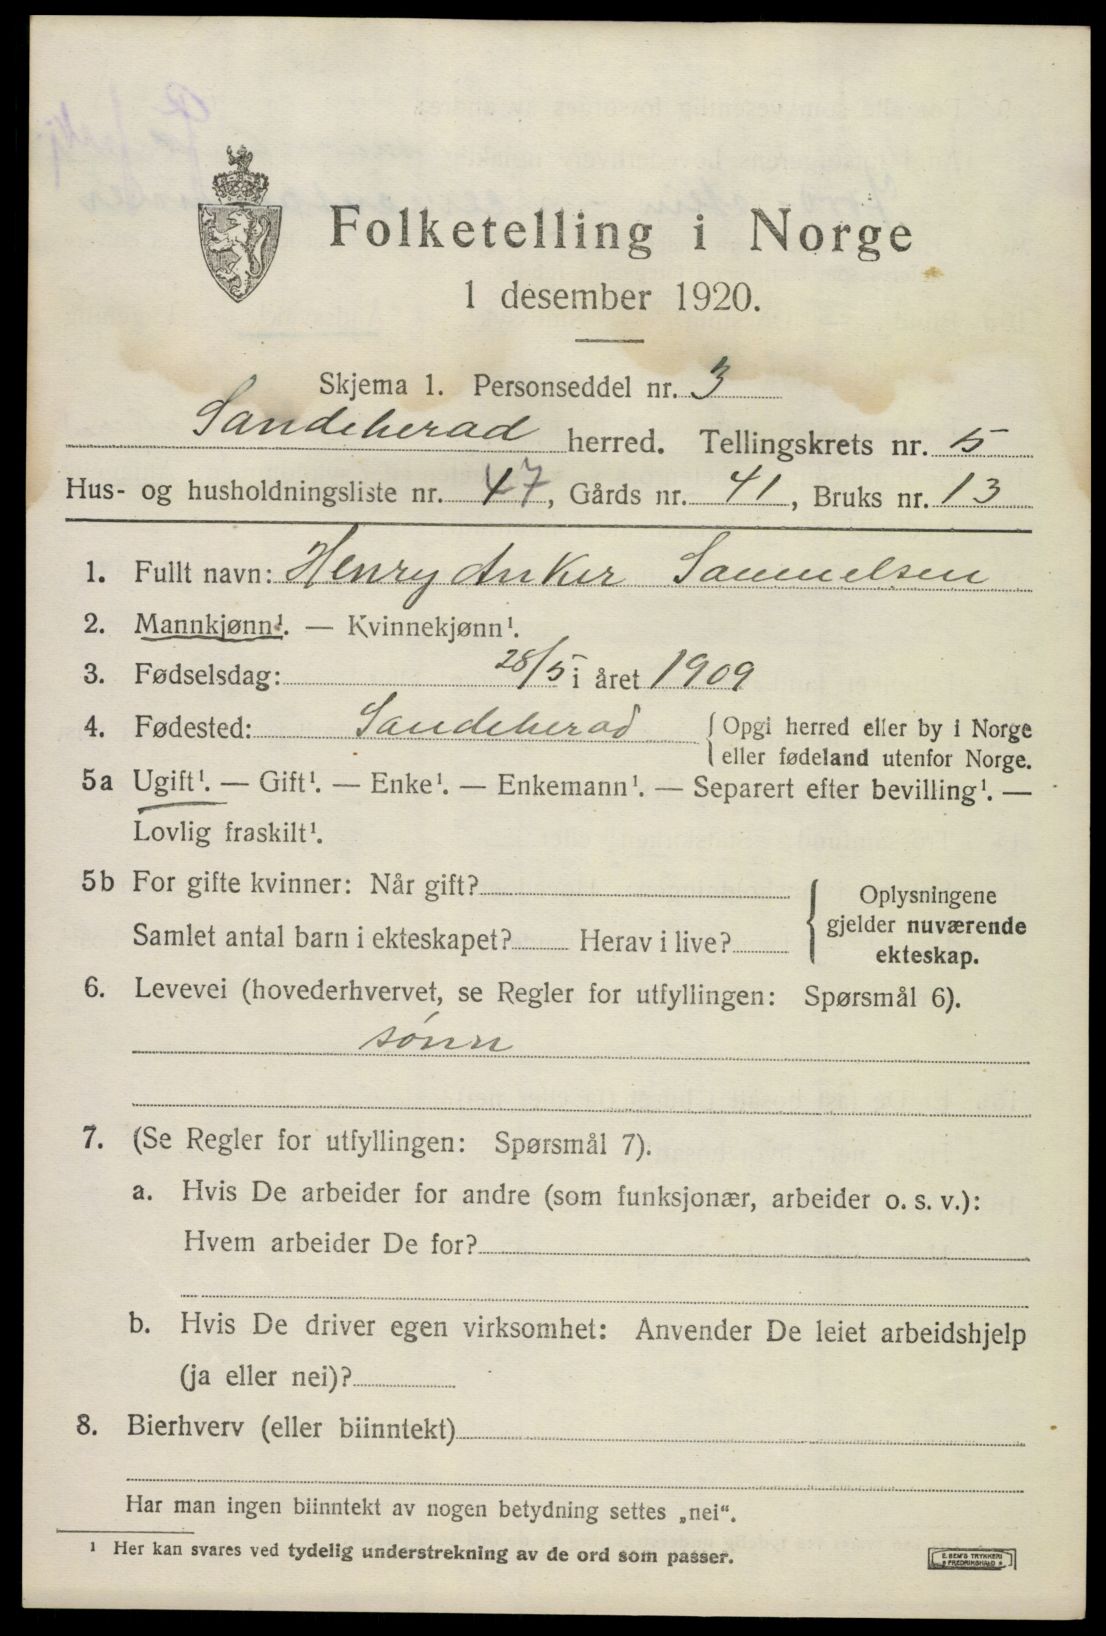 Folketelling i Norge
1 desember 1920.
Skjema 1. Personseddel nr. 3
Sandeherad herred. Tellingskrets nr. 5
Hus- og husholdningsliste nr. 47, Gårds nr. 41, Bruks nr. 13
1. Fullt navn: Henry Anker Samuelsen
2. Mannkjønn¹. — Kvinnekjønn¹.
3. Fødselsdag: 28/5 i året 1909
4. Fødested: Sandeherad { Opgi herred eller by i Norge
eller fødeland utenfor Norge.
5a Ugift¹. — Gift¹. — Enke¹. — Enkemann¹. — Separert efter bevilling¹. —
Lovlig fraskilt¹.
5b For gifte kvinner: Når gift?
Samlet antal barn i ekteskapet? Herav i live?
{ Oplysningene
gjelder nuværende
ekteskap.
6. Levevei (hovederhvervet, se Regler for utfyllingen: Spørsmål 6).
sønn
7. (Se Regler for utfyllingen: Spørsmål 7).
a. Hvis De arbeider for andre (som funksjonær, arbeider o. s. v.):
Hvem arbeider De for?
b. Hvis De driver egen virksomhet: Anvender De leiet arbeidshjelp
(ja eller nei)?
8. Bierhverv (eller biinntekt)
Har man ingen biinntekt av nogen betydning settes „nei“.
¹ Her kan svares ved tydelig understrekning av de ord som passer.
E. SEM'S TRYKKERI
FREDRIKSHALD